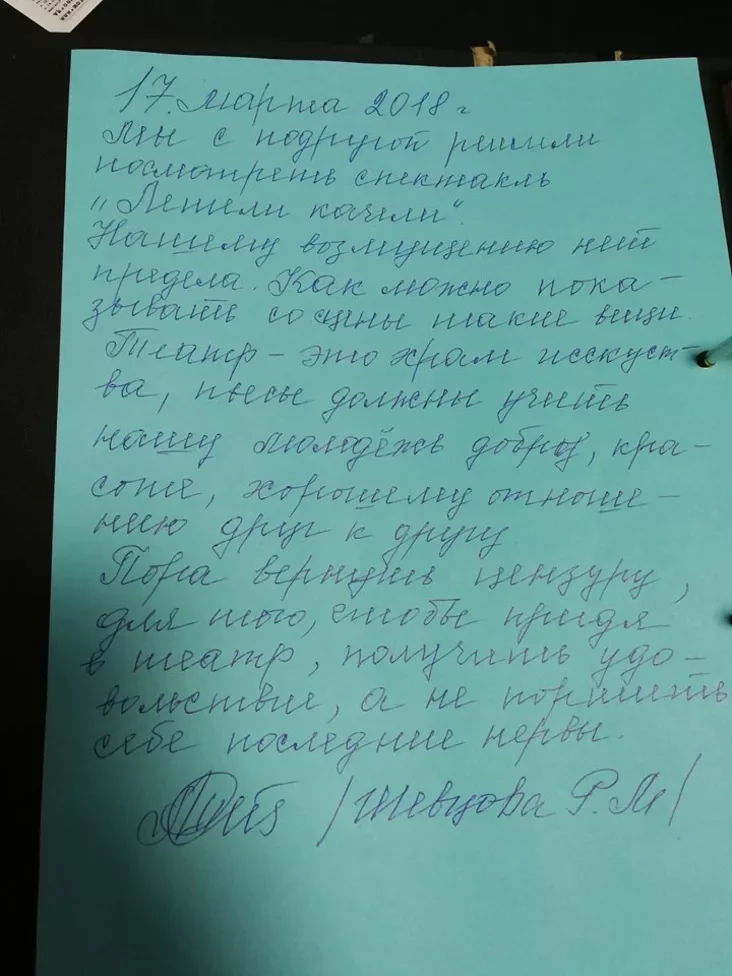 17 марта 2018 г
Мы с подругой решили
посмотреть спектакль
„Летели качели“.
Нашему возмущению нет
предела. Как можно пока-
зывать со сцены такие вещи.
Театр - это храм исскуст-
ва, пьесы должны учить
нашу молодёжь добру, кра-
соте, хорошему отноше-
нию друг к другу.
Пора вернуть цензуру,
для того, чтобы придя
в театр, получить удо-
вольствие, а не портить
себе последние нервы.
/Шевцова Р.М/